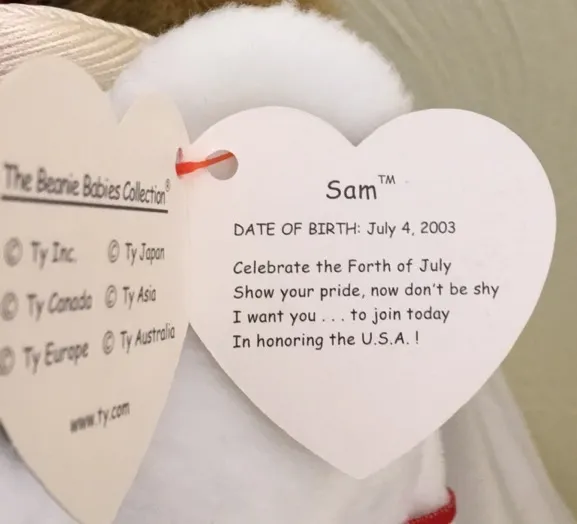 The Beanie Babies Collection®
© Ty Inc. © Ty Japan
© Ty Canada © Ty Asia
© Ty Europe © Ty Australia
www.ty.com
Sam™
DATE OF BIRTH: July 4, 2003
Celebrate the Forth of July
Show your pride, now don't be shy
I want you . . . to join today
In honoring the U.S.A. !